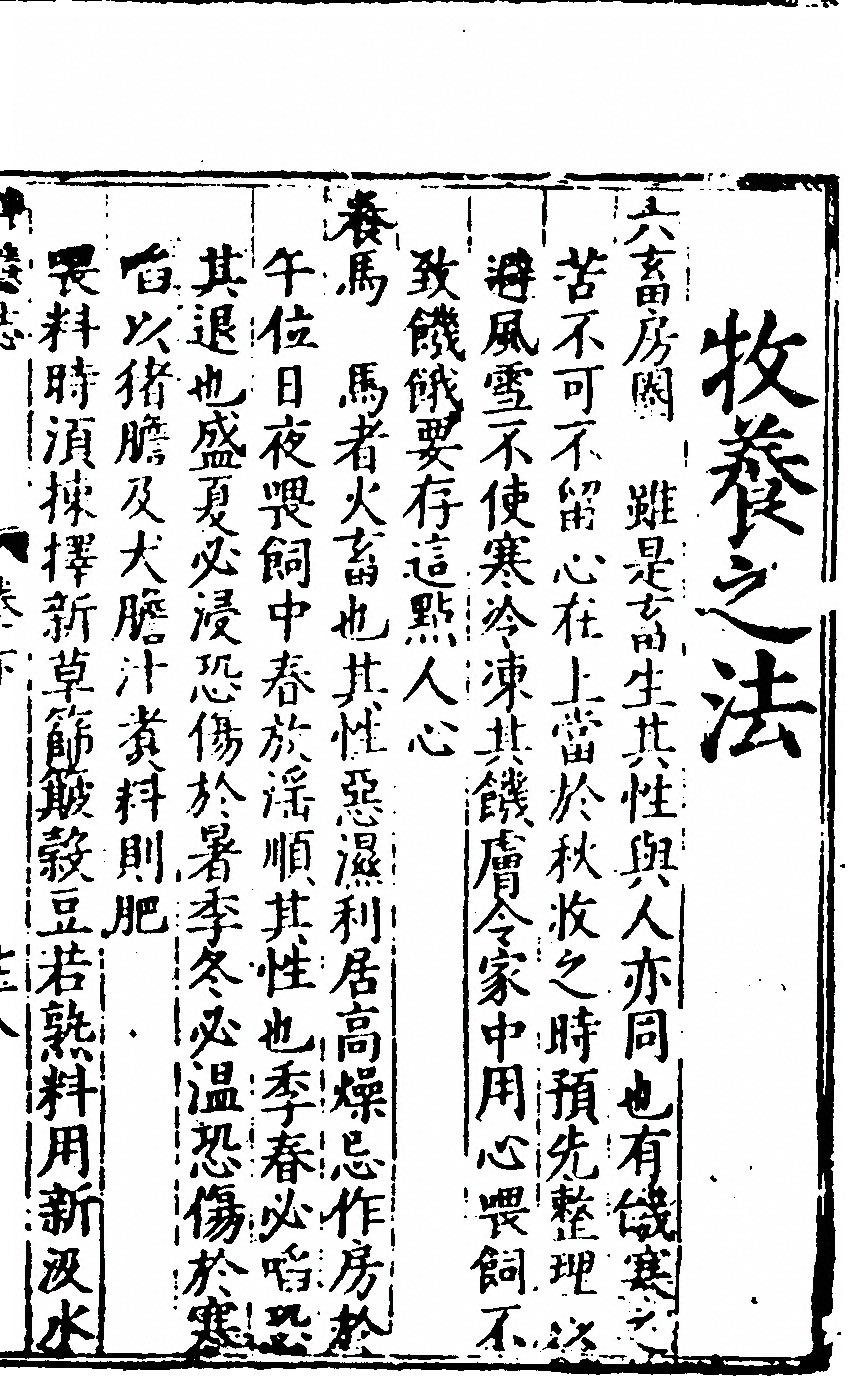 牧養之法
六畜房圈　雖是畜生其性與人亦同也有饑寒之
苦不可不留心在上當於秋收之時預先整理以
避風雪不使寒冷凍其饑膚令家中用心喂飼不
致饑餓要存這點人心
養馬　馬者火畜也其性惡濕利居高燥忌作房於
午位日夜喂飼中春放淫順其性也季春必啗恐
其退也盛夏必浸恐傷於暑季冬必溫恐傷於寒
啗以猪膽及犬膽汁煮料則肥
喂料時須揀擇新草篩簸穀豆若熟料用新汲水